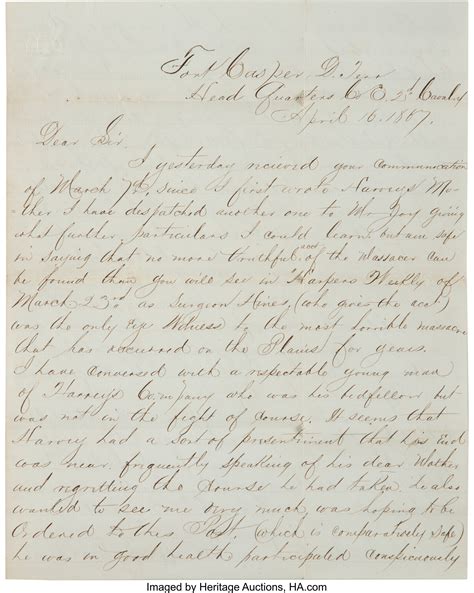 Fort Casper D. Terr
Head Quarters Co E. 2d Cavalry
April 16. 1867.
Dear Sir.
I yesterday recieved your communication
of March 7th, since I first wrote Harveys Mo-
=ther I have despatched another one to Mr Joy giving
what further particulars I could learn but am safe
in saying that no more truthful acct of the Massacer can
be found than you will see in "Harpers Weekly of
March 23rd as Surgeon Hines, (who gives the acct)
was the only Eye Witness to the most horrible massacre
that has occurred on the Plains for years.
I have conversed with a respectable young man
of Harveys Company who was his bedfellow but
was not in the fight of course. It seems that
Harvey had a sort of presentiment that his End
was near. frequently speaking of his dear Mother
and regretting the course he had taken he also
wanted to see me very much, was hoping to be
Ordered to this Post. (which is comparatively safe)
he was in good health participated conspicuously
Imaged by Heritage Auctions, HA.com